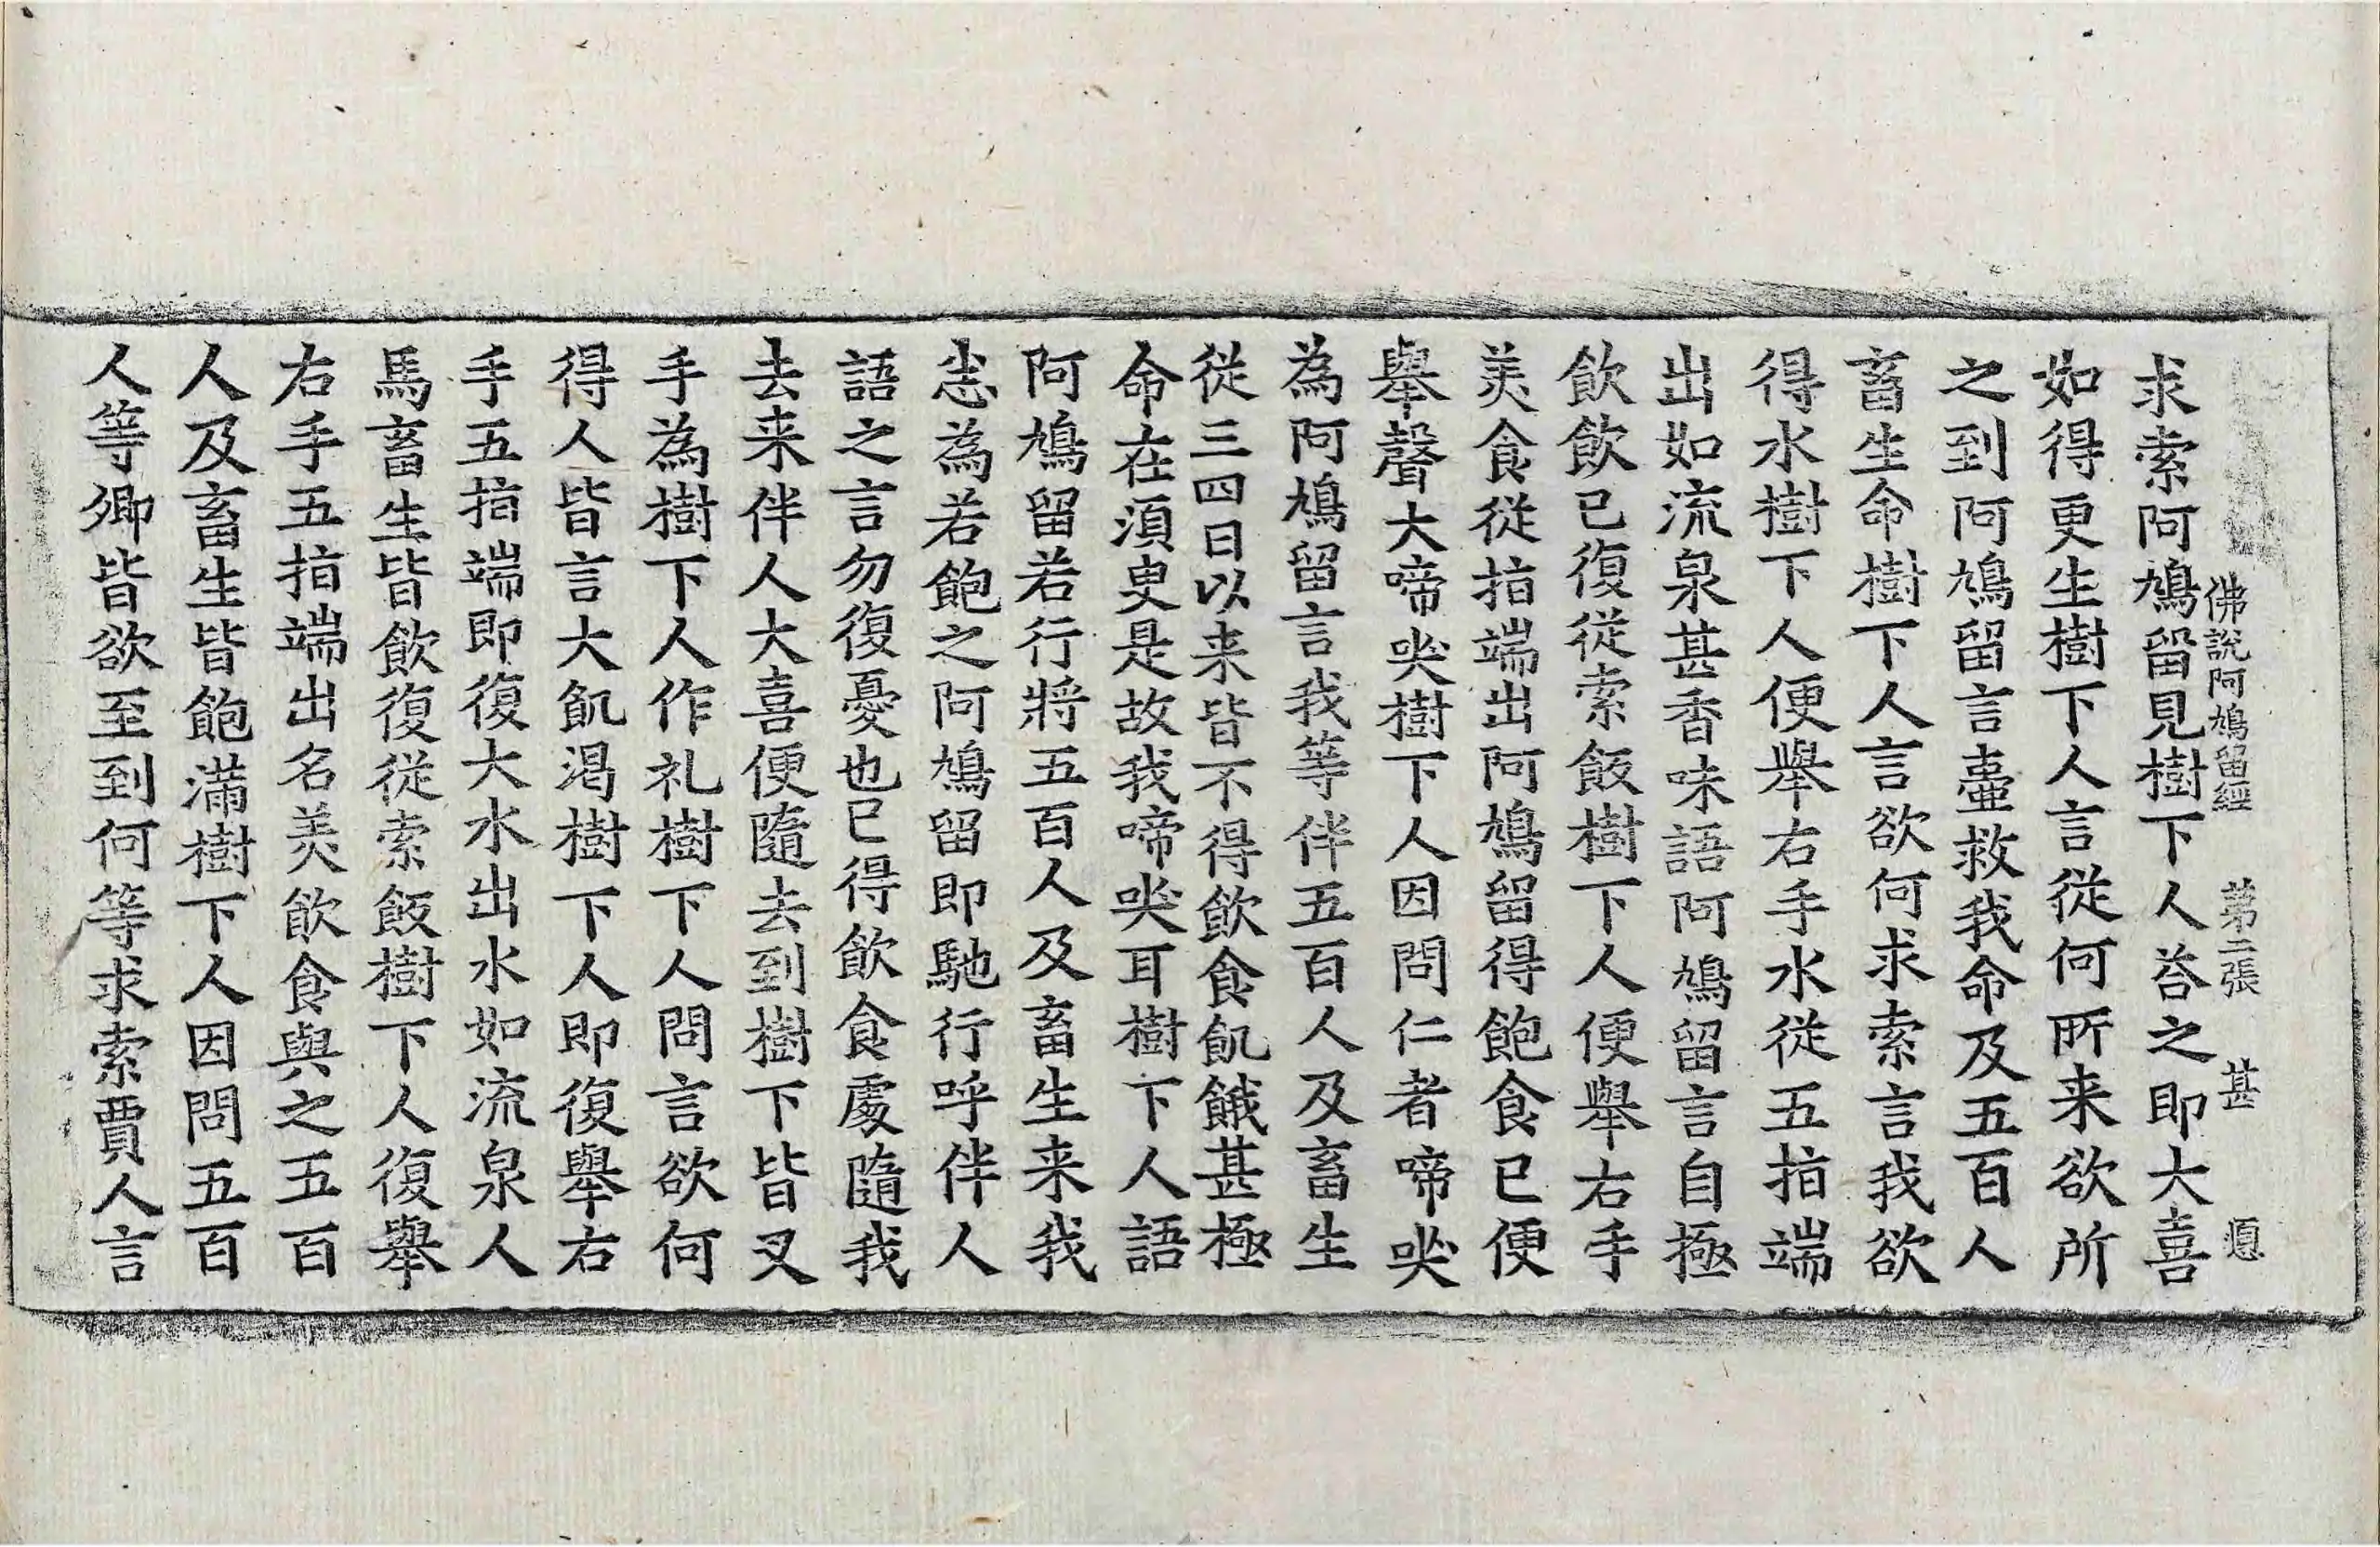 佛說阿鳩留經 苐二張 甚
求索阿鳩留見樹下人荅之即大喜
如得更生樹下人言從何所来欲所
之到阿鳩留言臺救我命及五百人
畜生命樹下人言欲何求索言我欲
得水樹下人便舉右手水從五指端
出如流泉甚香味語阿鳩留言自極
飲飲已復從索飯樹下人便舉右手
美食從指端出阿鳩留得飽食已便
舉聲大啼哭樹下人因問仁者啼哭
為阿鳩留言我等伴五百人及畜生
從三四日以来皆不得飲食飢餓甚極
命在須臾是故我啼哭耳樹下人語
阿鳩留若行將五百人及畜生来我
悉為若飽之阿鳩留即馳行呼伴人
語之言勿復憂也已得飲食處隨我
去来伴人大喜便隨去到樹下皆叉
手為樹下人作礼樹下人問言欲何
得人皆言大飢渴樹下人即復舉右
手五指端即復大水出水如流泉人
馬畜生皆飲復從索飯樹下人復舉
右手五指端出名美飲食與之五百
人及畜生皆飽滿樹下人因問五百
人等卿皆欲至到何等求索賈人言